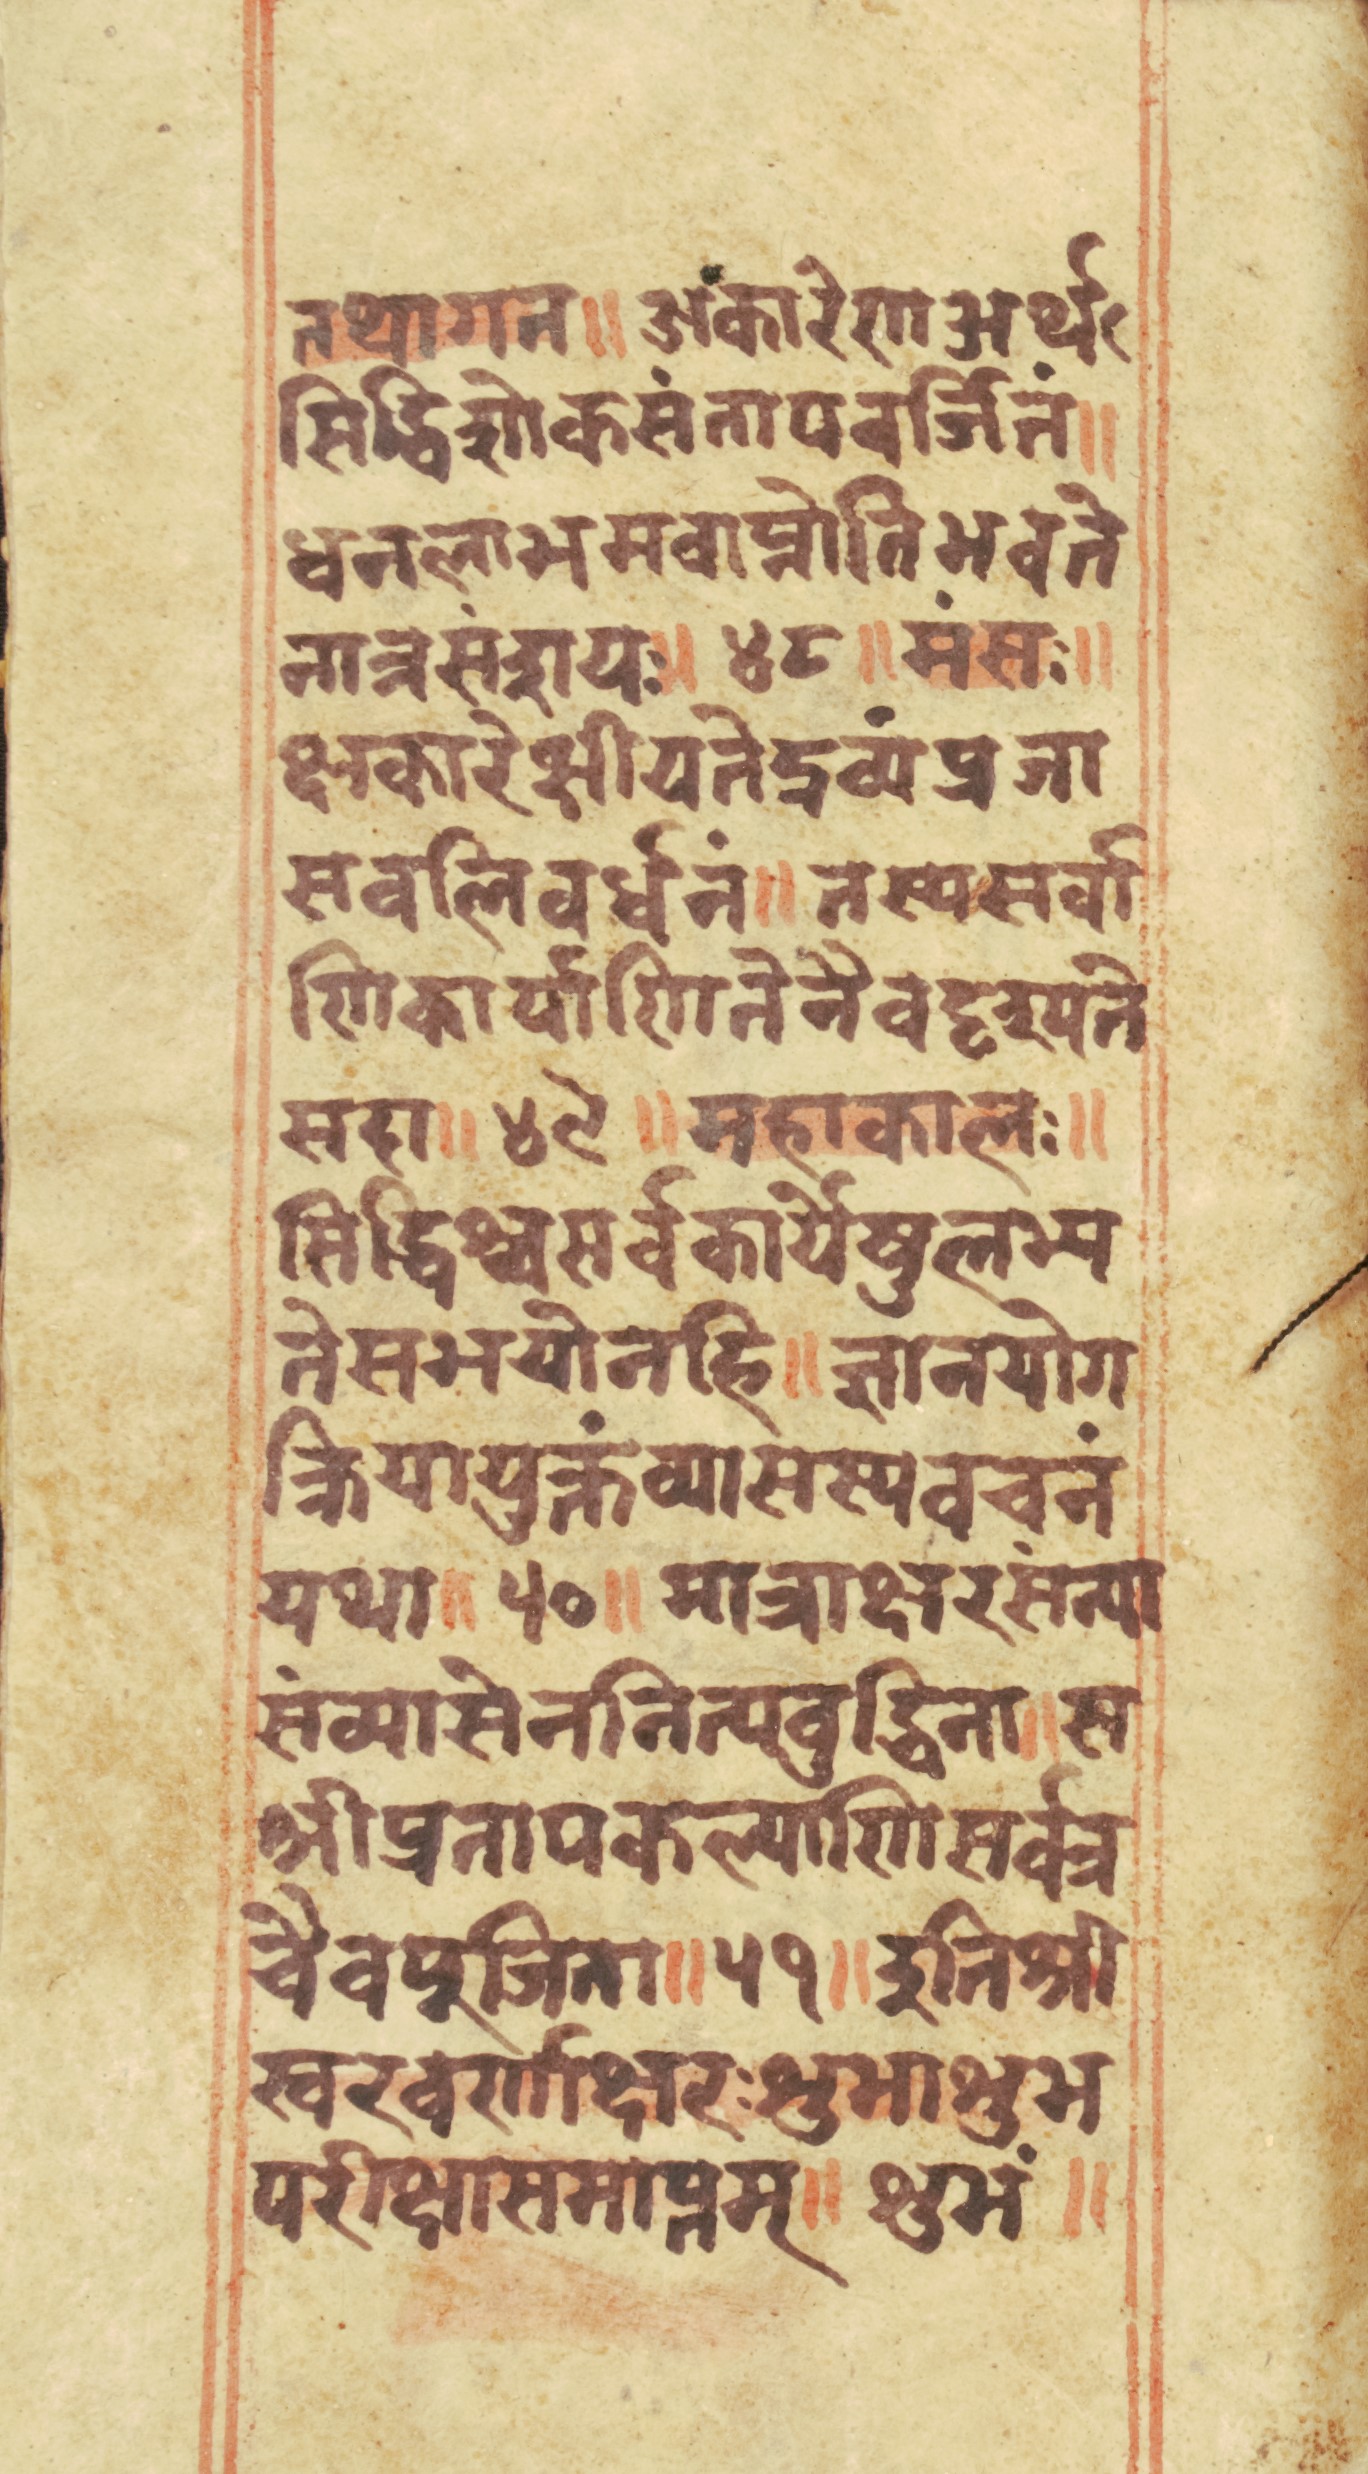 तथागत ॥ अंकारेण अर्थ
सिद्धि शोकसंतापवर्जितं ॥
धनलाभमवाप्नोति भवते
नात्रसंशयः ॥ ४८ ॥ मंसः ॥
क्षकारे क्षीयते द्रव्यं प्रजा
सवलिवर्धनं ॥ तस्य सर्वा
णि कार्याणि ते नैव दृश्यते
सदा ॥ ४९ ॥ महाकालः ॥
सिद्धिश्च सर्वकार्येषु लभ्य
ते सभयो नहि ॥ ज्ञानयोग
क्रियायुक्तं व्यासस्य वचनं
यथा ॥ ५० ॥ मात्राक्षरसंन्या
सं व्यासेन नित्यबुद्धिना ॥ स
श्रीप्रतापकल्याणि सर्वत्र
चैव पूजिता ॥ ५१ ॥ इति श्री
स्वरवर्णाक्षरः शुभाशुभ
परीक्षा समाप्तम् ॥ शुभं ॥